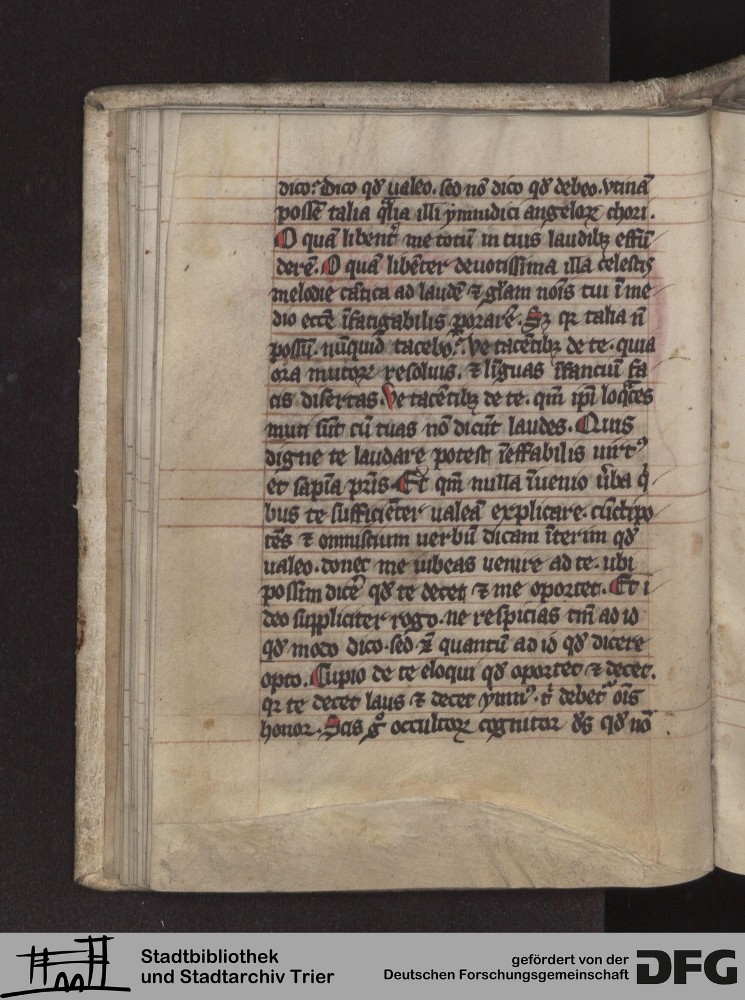 dico? Dico qđ ualeo. sed nō dico qđ debeo. vtinā
possē talia q̄lia illi ymnidici angeloꝝ chori.
O quā libent᷑ me totū in tuis laudibꝫ effū
derē. O quā libēter deuotissima illa celestis
melodie cātica ad laudē ⁊ glām nōis tui ī me
dio eccē īfatigabilis ꝑorarē. Sꝫ qꝛ talia ñ
possū. nūquid tacebo? Ve tacētibꝫ de te. quia
ora mutoꝝ resoluis. ⁊ līguas īfanciū fa
cis disertas. Ve tacētibꝫ de te. qm̄ ip̄i loq̄ces
muti sūt cū tuas nō dicūt laudes. Quis
digne te laudare potest īeffabilis uirtꝰ
et sapīa pr̄is. Et qm̄ nulla īuenio ūba q̇
bus te sufficiēter ualeā explicare. cūctipo
tēs ⁊ omnisciū uerbū dicam īterim qđ
ualeo. donec me iubeas uenire ad te. ubi
possim dicē qđ te decet ⁊ me oportet. Et i
deo suppliciter rogo. ne respicias tm̄ ad id
qđ modo dico. sed ⁊ quantū ad id qđ dicere
opto. Cupio de te eloqui qđ oportet ⁊ decet.
qꝛ te decet laus ⁊ decet ymnꝰ. t̄ debet᷑ ōis
honor. Scis gͦ occultoꝝ cognitor ds̄ qđ nō
Stadtbibliothek
und Stadtarchiv Trier
gefördert von der
Deutschen Forschungsgemeinschaft
DFG